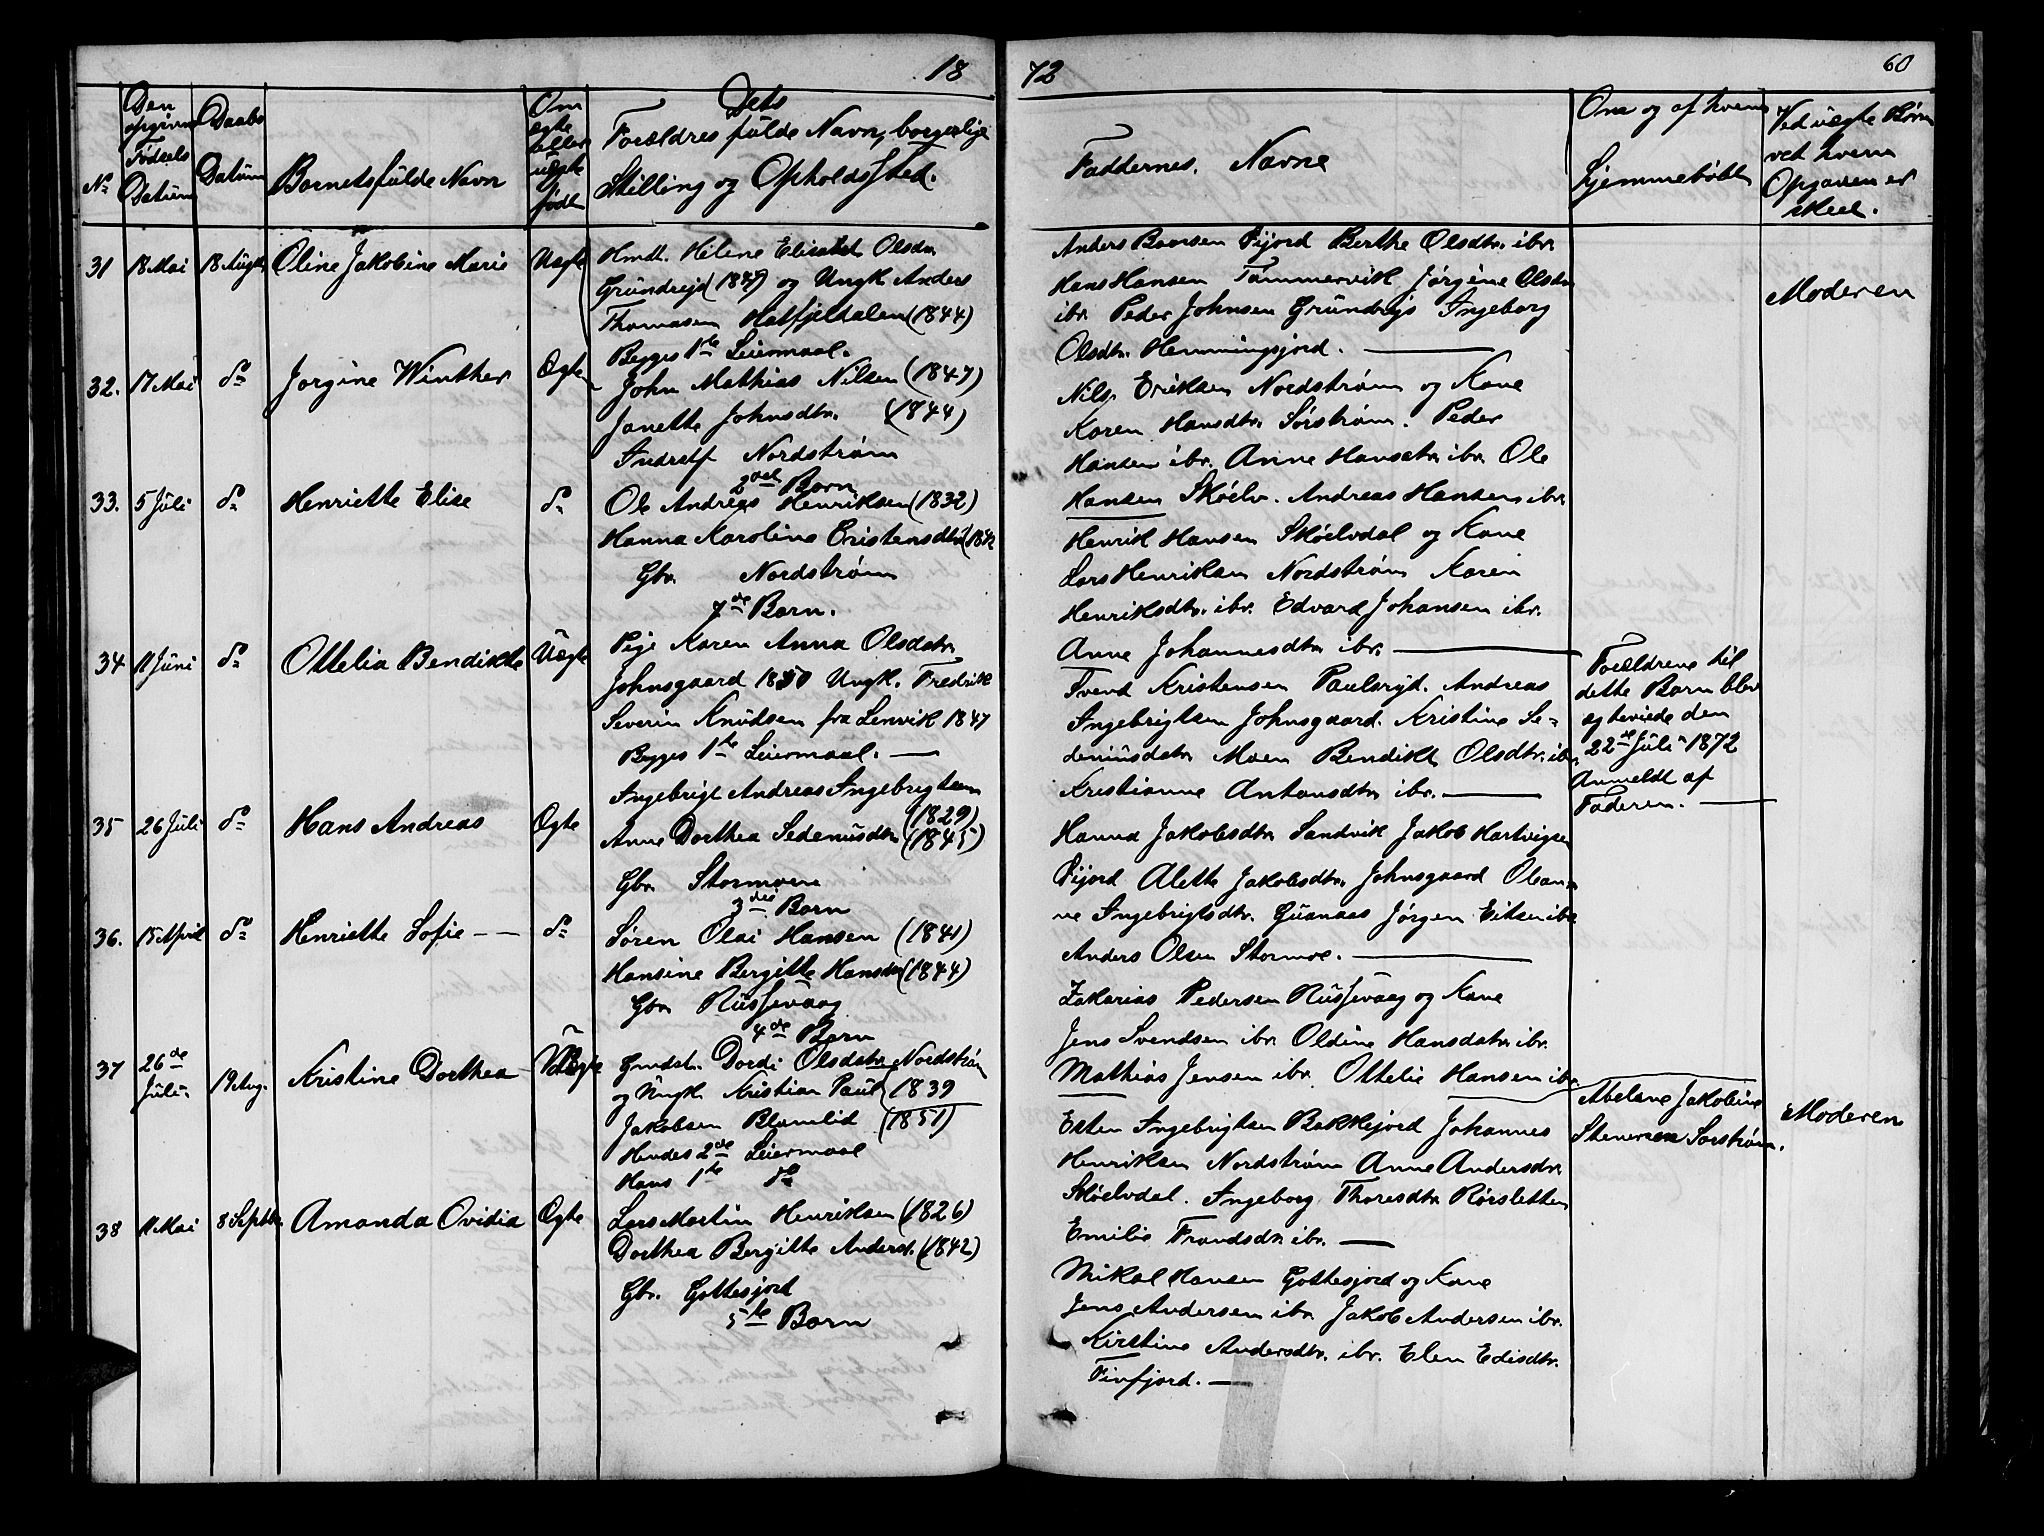 1872
60
No
Den opgivne Fødsels Datum
Daabs Datum
Barnets fulde Navn
Om ægte eller uægte født
Dets Forældres fulde Navn, borgerlige Stilling og Opholdssted.
Faddernes Navne
Om og af hvem Hjemmedøbt
Ved uægte Børn ved hvem Opgaven er skeet.
31 18 Mai 18 Augt Oline Jakobine Marie Uægte
Hmdt. Helene Elisabet Olsdtr.
Grundrejd (1847) og Ungk Anders
Thomasen Hatfjeldalen (1844)
Begges 1te Leiermaal.
Anders Bonsen Fijord Berthe Olsdtr. ibr.
Hans Hansen Tømmervik Jørgine Olsdtr
ibr. Peder Johnsen Grundrejs Ingeborg
Olsdtr. Hemmingsjord.
Moderen
32. 17 Mai do Jørgine Winther Ægte
John Mathias Nilsen (1847)
Janette Johnsdtr. (1844)
Inderst Nordstrøm
2det Barn
Nils Eriksen Nordstrøm og Kone
Karen Hansdtr. Sørstrøm. Peder
Hansen ibr. Anne Hansdtr. ibr. Ole
Hansen Skøelv. Andreas Hansen ibr.
33. 5 Juli do Henriette Elise do
Ole Andreas Henriksen (1832)
Hanna Karoline Cristensdtr (184
Gbr. Nordstrøm
7de Barn.
Henrik Hansen Skøelvdal og Kone
Lars Henriksen Nordstrøm Karen
Henriksdtr. ibr. Edvard Johansen ibr.
Anne Johannesdtr. ibr.
34 11 Juni do Ottelia Bendikte Uægte
Pige Karen Anna Olsdatr.
Johnsgaard 1850 Ungk. Fredrik
Severin Knudsen fra Lenvik 1847
Begges 1te Leiermaal.
Svend Kristensen Paulsryd. Andreas
Ingebrigtsen Johnsgaard. Kristine Se-
deniusdatr. Moen Bendikt Olsdtr. ibr.
Kristianne Antonsdtr. ibr.
Forældrene til
dette Barn blev
egteviede den
22de Juli 1872
Anmeldt af
Faderen.
35 26 Juli do Hans Andreas Ægte
Ingebrigt Andreas Ingebrigtsen
(1829)
Anne Dorthea Sedeniusdtr (1845)
Gbr. Stormoen
3die Barn
Hanna Jakobsdtr. Sandvik Jakob Hartvigsen
Fijord Alette Jakobsdtr. Johnsgaard Olean-
ne Ingebrigtsdtr. Guanaes Jørgen Eitsen ibr.
Anders Olsen Stormoe.
36. 15 April do Henriette Sofie do
Søren Olai Hansen (1841)
Hansine Bergitte Hansdtr (1844)
Gbr. Russevaag
4de Barn
Zakarias Pedersen Russevaag og Kone
Jens Svendsen ibr. Oldine Hansdatr. ibr.
Mathias Jensen ibr. Ottelie Hansen ibr.
37 26de Juli. 19 Aug. Kristine Dorthea Uægte
Gmdst. Dordi Olsdatr. Nordstrøm
og Ungk Kristian Paul 1839
Jakobsen Blomlid (1851)
Hendes 2de Leiermaal
Hans 1te do
Esten Ingebrigtsen Bakkejord Johannes
Henriksen Nordstrøm Anne Andersdtr.
Skøelvdal. Ingeborg Thoresdtr. Rørsletten
Emilie Frandsdtr. ibr.
Abelone Jakobine
Stenersen Sørstrøm.
Moderen
38 11 Mai 8 Septbr Amanda Ovidia Ægte
Lars Martin Henriksen (1826)
Dorthea Bergitte Andersd. (1842)
Gbr. Gottesjord
5te Barn
Mikal Hansen Gottesjord og Kone
Jens Andersen ibr. Jakob Andersen ibr.
Kirstine Andersdtr. ibr. Elen Edisdtr.
Finfjord.